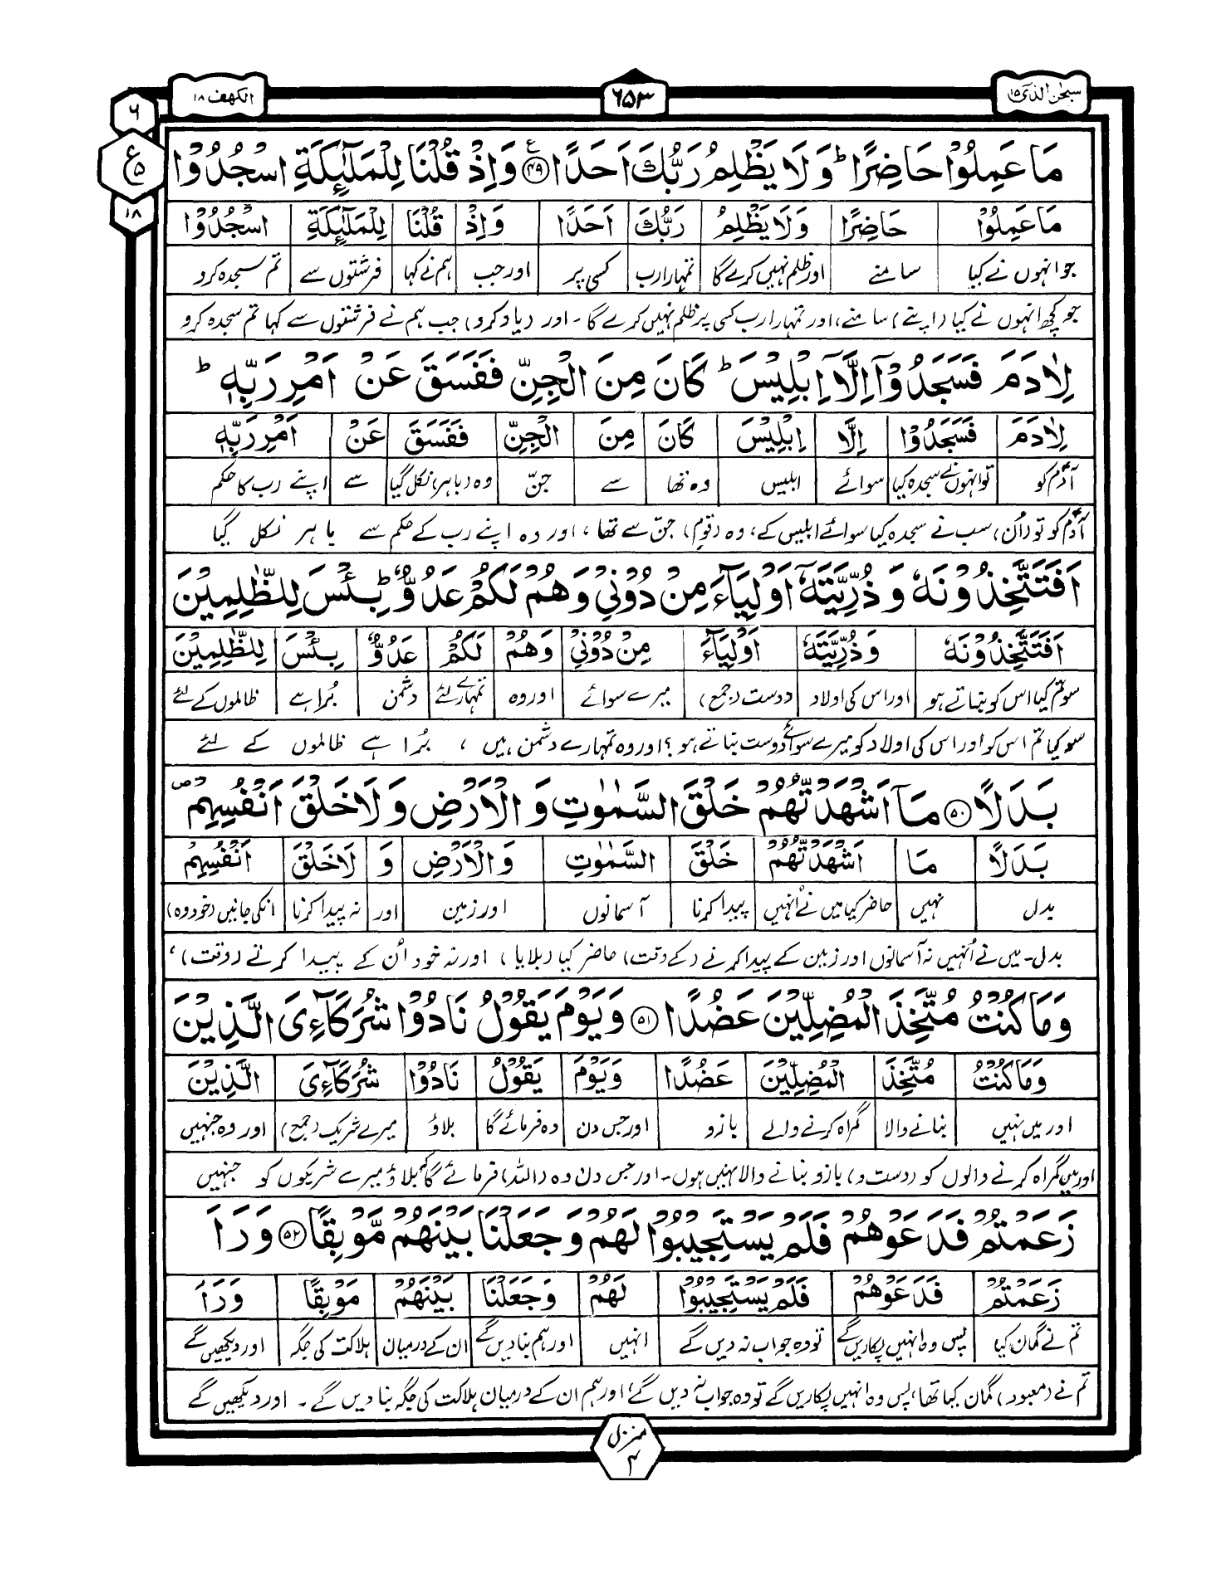 سبحٰن الذی ۱۵
۶۵۳
الکھف ۱۸
۶
ع
۵
۱۸
مَا عَمِلُوْا حَاضِرًا ؕ وَ لَا يَظْلِمُ رَبُّكَ اَحَدًا ۴۹ ع وَ اِذْ قُلْنَا لِلْمَلٰٓئِكَةِ اسْجُدُوْا
مَا عَمِلُوْا حَاضِرًا وَلَا يَظْلِمُ رَبُّكَ اَحَدًا وَاِذْ قُلْنَا لِلْمَلٰٓئِكَةِ اسْجُدُوْا
جو انہوں نے کیا سامنے اور ظلم نہیں کرے گا تمہارا رب کسی پر اور جب ہم نے کہا فرشتوں سے تم سجدہ کرو
جو کچھ انہوں نے کیا (اپنے) سامنے، اور تمہارا رب کسی پر ظلم نہیں کرے گا ۔ اور (یاد کرو) جب ہم نے فرشتوں سے کہا تم سجدہ کرو
لِاٰدَمَ فَسَجَدُوْٓا اِلَّآ اِبْلِيْسَ ؕ كَانَ مِنَ الْجِنِّ فَفَسَقَ عَنْ اَمْرِ رَبِّهٖ ؕ
لِاٰدَمَ فَسَجَدُوْٓا اِلَّا اِبْلِيْسَ كَانَ مِنَ الْجِنِّ فَفَسَقَ عَنْ اَمْرِ رَبِّهٖ
آدمؑ کو تو انہوں نے سجدہ کیا سوائے ابلیس وہ تھا سے جنّ وہ (باہر) نکل گیا سے اپنے رب کا حکم
آدمؑ کو تو (اُن) سب نے سجدہ کیا سوائے ابلیس کے، وہ (قومِ) جنّ سے تھا، اور وہ اپنے رب کے حکم سے باہر نکل گیا
اَفَتَتَّخِذُوْنَهٗ وَ ذُرِّيَّتَهٗٓ اَوْلِيَآءَ مِنْ دُوْنِيْ وَهُمْ لَكُمْ عَدُوٌّ ؕ بِئْسَ لِلظّٰلِمِيْنَ
اَفَتَتَّخِذُوْنَهٗ وَذُرِّيَّتَهٗٓ اَوْلِيَآءَ مِنْ دُوْنِيْ وَهُمْ لَكُمْ عَدُوٌّ بِئْسَ لِلظّٰلِمِيْنَ
سو تم کیا اس کو بناتے ہو اور اس کی اولاد دوست (جمع) میرے سوائے اور وہ تمہارے لئے دشمن بُرا ہے ظالموں کے لئے
سو کیا تم اس کو اور اس کی اولاد کو میرے سوائے دوست بناتے ہو؟ اور وہ تمہارے دشمن ہیں، بُرا ہے ظالموں کے لئے
بَدَلًا ۵۰ مَآ اَشْهَدْتُّهُمْ خَلْقَ السَّمٰوٰتِ وَ الْاَرْضِ وَ لَا خَلْقَ اَنْفُسِهِمْ ص
بَدَلًا مَا اَشْهَدْتُّهُمْ خَلْقَ السَّمٰوٰتِ وَالْاَرْضِ وَ لَا خَلْقَ اَنْفُسِهِمْ
بدل نہیں حاضر کیا میں نے اُنہیں پیدا کرنا آسمانوں اور زمین اور نہ پیدا کرنا انکی جانیں (خود وہ)
بدل۔ میں نے اُنہیں نہ آسمانوں اور زمین کے پیدا کرنے (کے وقت) حاضر کیا (بلایا) اور نہ خود اُن کے پیدا کرنے (وقت)،
وَمَا كُنْتُ مُتَّخِذَ الْمُضِلِّيْنَ عَضُدًا ۵۱ وَيَوْمَ يَقُوْلُ نَادُوْا شُرَكَآءِيَ الَّذِيْنَ
وَمَا كُنْتُ مُتَّخِذَ الْمُضِلِّيْنَ عَضُدًا وَيَوْمَ يَقُوْلُ نَادُوْا شُرَكَآءِيَ الَّذِيْنَ
اور میں نہیں بنانے والا گمراہ کرنے والے بازو اور جس دن وہ فرمائے گا بلاؤ میرے شریک (جمع) اور وہ جنہیں
اور میں گمراہ کرنے والوں کو (دست و) بازو بنانے والا نہیں ہوں۔ اور جس دن وہ (اللہ) فرمائے گا بُلاؤ میرے شریکوں کو جنہیں
زَعَمْتُمْ فَدَعَوْهُمْ فَلَمْ يَسْتَجِيْبُوْا لَهُمْ وَجَعَلْنَا بَيْنَهُمْ مَّوْبِقًا ۵۲ وَرَاَ
زَعَمْتُمْ فَدَعَوْهُمْ فَلَمْ يَسْتَجِيْبُوْا لَهُمْ وَجَعَلْنَا بَيْنَهُمْ مَوْبِقًا وَرَاَ
تم نے گمان کیا پس وہ انہیں پکاریں گے تو وہ جواب نہ دیں گے انہیں اور ہم بنا دیں گے ان کے درمیان ہلاکت کی جگہ اور دیکھیں گے
تم نے (معبود) گمان کیا تھا، پس وہ انہیں پکاریں گے تو وہ جواب نہ دیں گے، اور ہم ان کے درمیان ہلاکت کی جگہ بنا دیں گے ۔ اور دیکھیں گے
منزل
۴